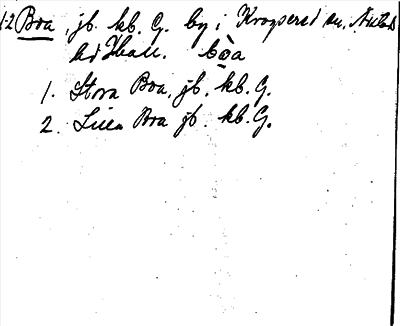 1-2 Boa, jb. kb. G. by i Kropered sn.
hd Hall. bòa
1. Stora Boa, jb. kb. G.
2. Lilla Boa jb. kb. G.